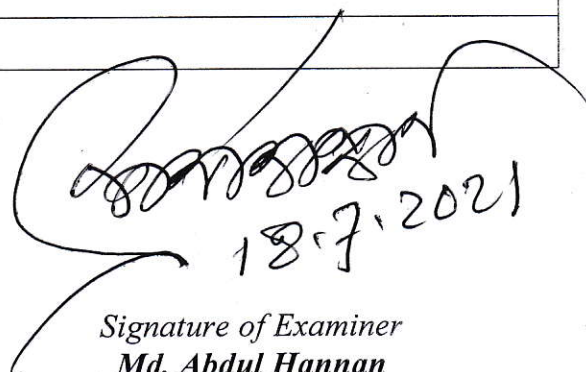 18.7.2021
Signature of Examiner
Md. Abdul Hannan